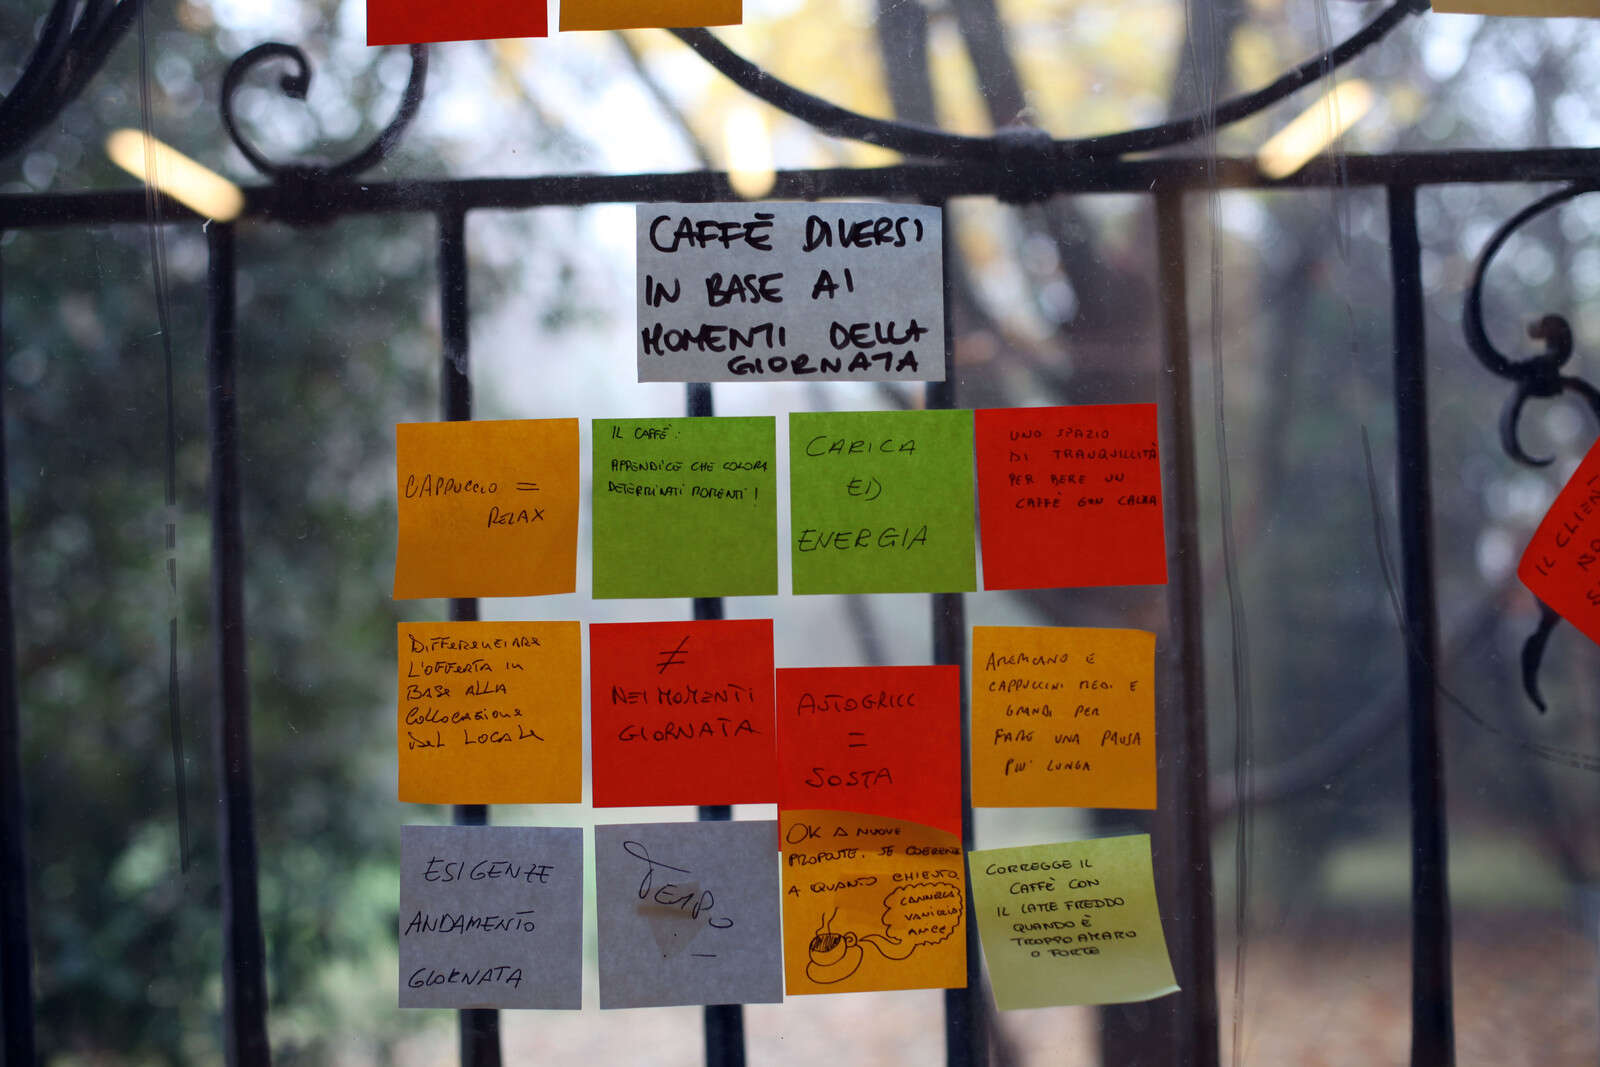 CAFFÈ DIVERSI
IN BASE AI
MOMENTI DELLA
GIORNATA
CAPPUCCIO =
RELAX
IL CAFFÈ:
APPENDICE CHE COLORA
DETERMINATI MOMENTI!
CARICA
ED
ENERGIA
UNO SPAZIO
DI TRANQUILLITÀ
PER BERE UN
CAFFÈ CON CALMA
DIFFERENZIARE
L'OFFERTA IN
BASE ALLA
COLLOCAZIONE
DEL LOCALE
≠
NEI MOMENTI
GIORNATA
AUTOGRILL
=
SOSTA
AMERICANO E
CAPPUCCINI MEDI E
GRANDI PER
FARE UNA PAUSA
PIU' LUNGA
ESIGENZE
ANDAMENTO
GIORNATA
TEMPO
OK A NUOVE
PROPOSTE, SE COERENTI
A QUANTO CHIESTO
CANNELLA
VANIGLIA
CORREGGE IL
CAFFÈ CON
IL LATTE FREDDO
QUANDO È
TROPPO AMARO
O FORTE
IL CLIENT